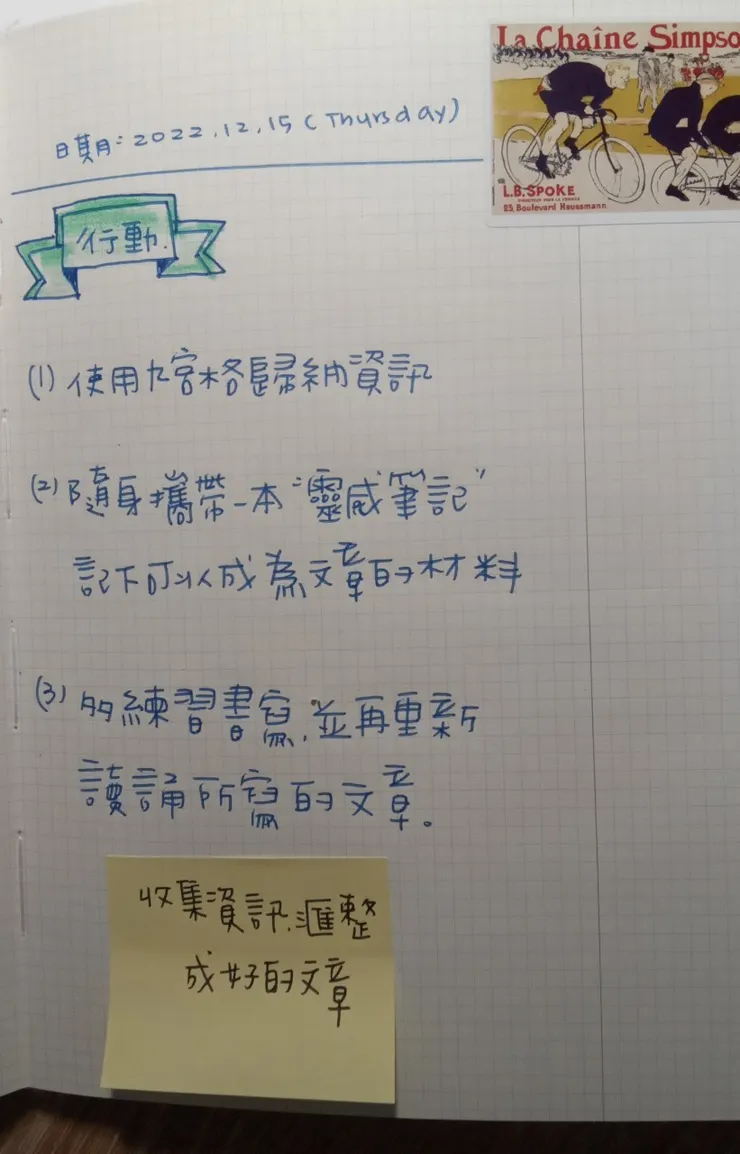 La Chaîne Simpso
L.B. SPOKE
25, Boulevard Haussmann
日期：2022.12.15 (Thursday)
行動.
(1) 使用九宮格歸納資訊
(2) 隨身攜帶一本"靈感筆記"
記下可以成為文章的材料
(3) 多練習書寫,並再重新
讀誦所寫的文章。
收集資訊,滙整
成好的文章